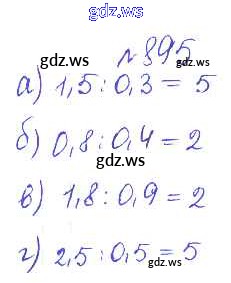 gdz.ws
№895
gdz.ws gdz.ws
а) 1,5 : 0,3 = 5
gdz.ws
б) 0,8 : 0,4 = 2
gdz.ws
в) 1,8 : 0,9 = 2
gdz.ws
г) 2,5 : 0,5 = 5
gdz.ws